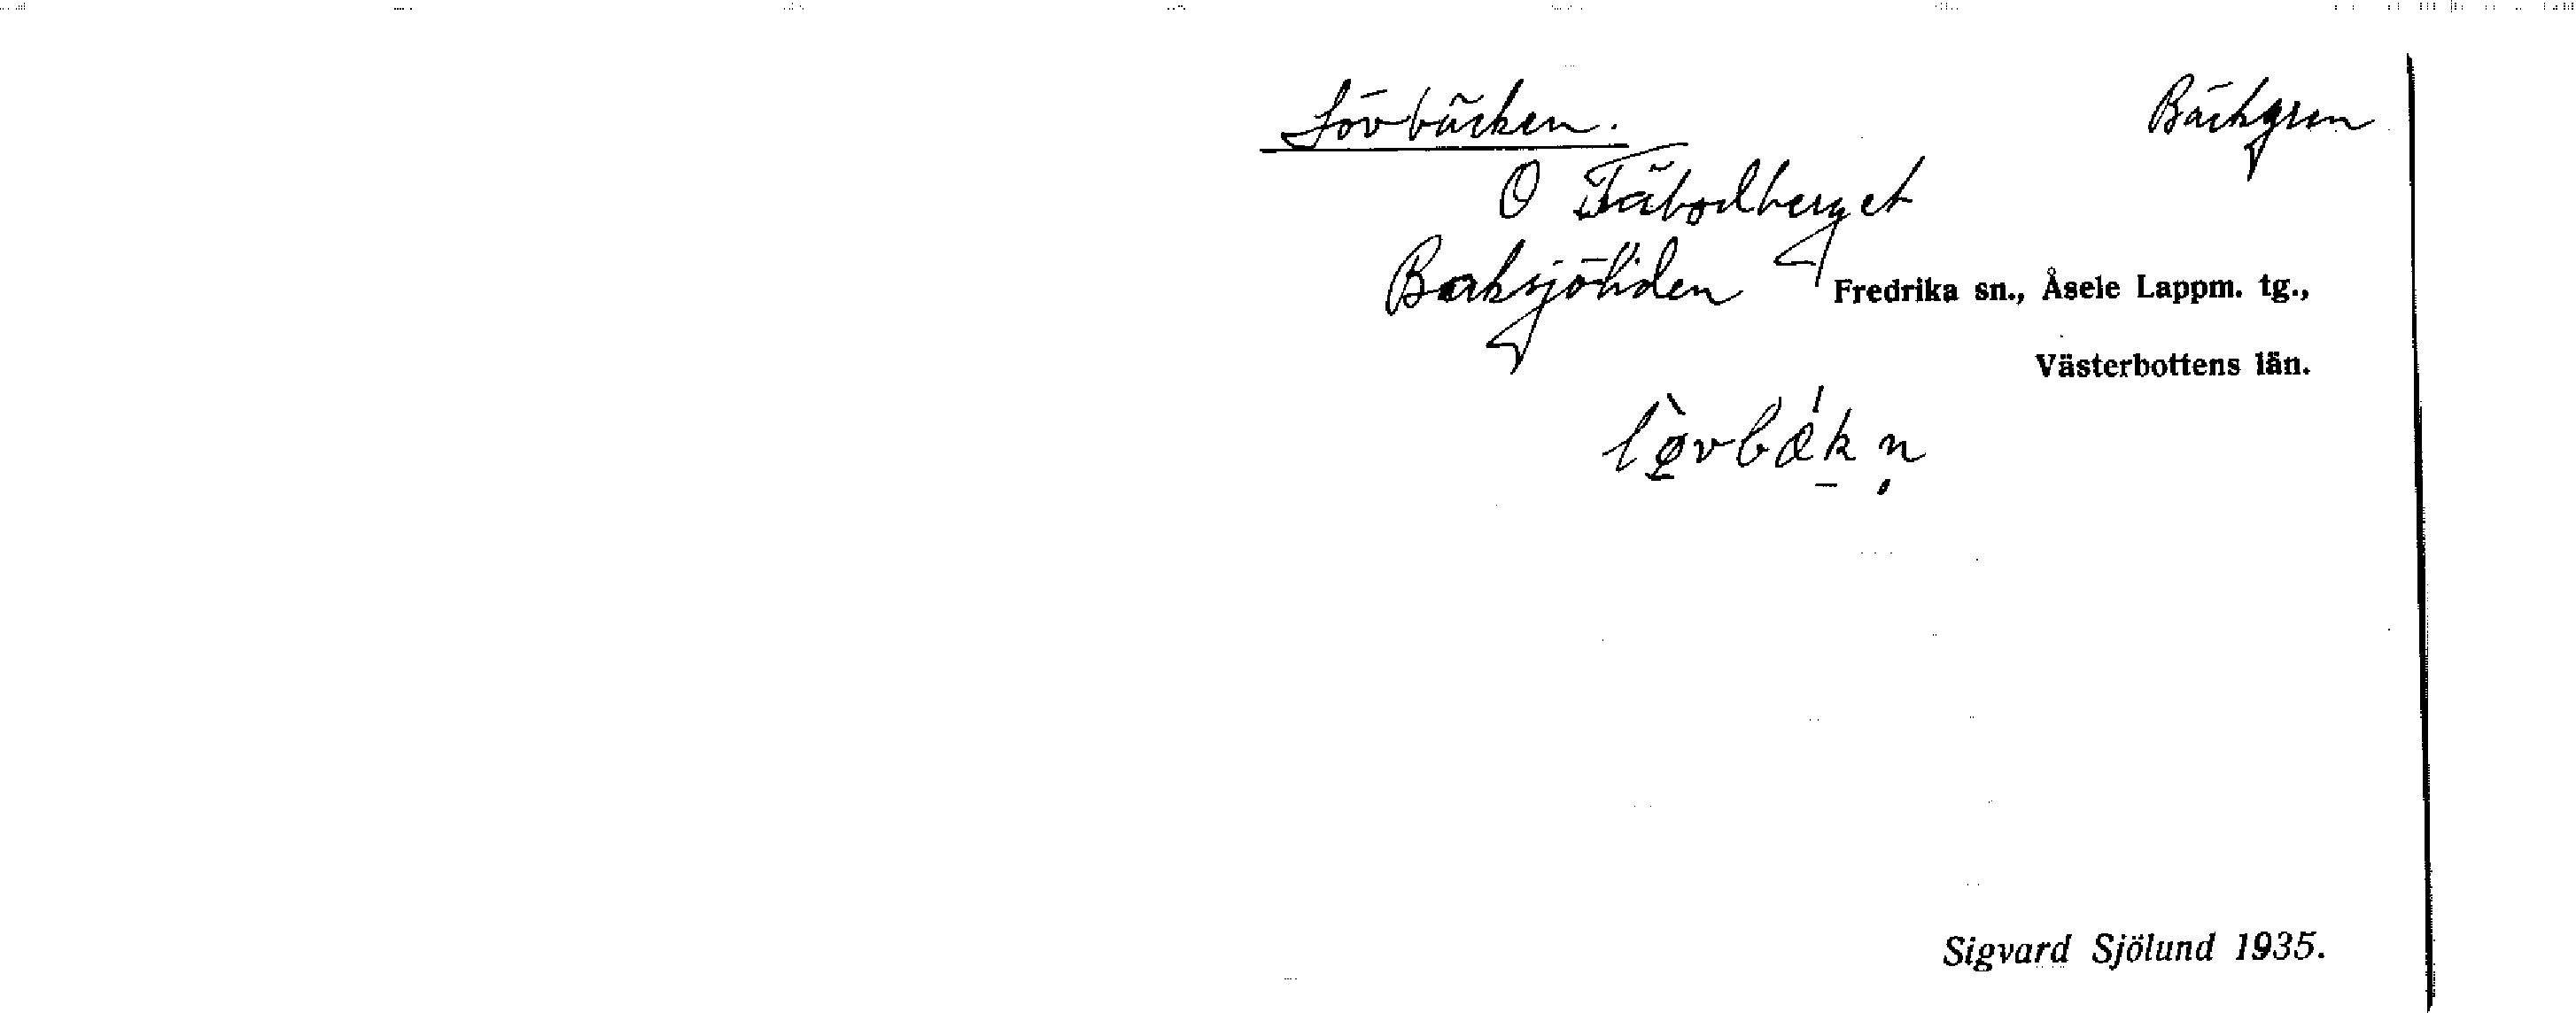 Lövbäcken. Bäckgren
O Fäbodberget
Borksjöliden Fredrika sn., Åsele Lappm. tg.,
Västerbottens län.
Sigvard Sjölund 1935.